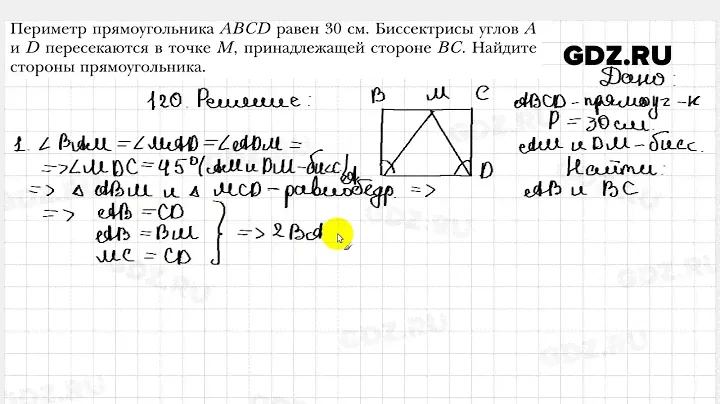 Периметр прямоугольника ABCD равен 30 см. Биссектрисы углов A
и D пересекаются в точке M, принадлежащей стороне BC. Найдите
стороны прямоугольника.
GDZ.RU
120. Решение:
Дано:
ABCD - прямоуг-к
P = 30 см.
AM и DM - бисс.
Найти:
AB и BC
B M C
A D
1. ∠BAM = ∠MAD = ∠ADM =
=> ∠MDC = 45° (AM и DM - бис.)
=> △ ABM и △ MCD - равнобедр. =>
=> AB = CD
AB = BM
MC = CD
=> 2BA
GDZ.RU
GDZ.RU
GDZ.RU